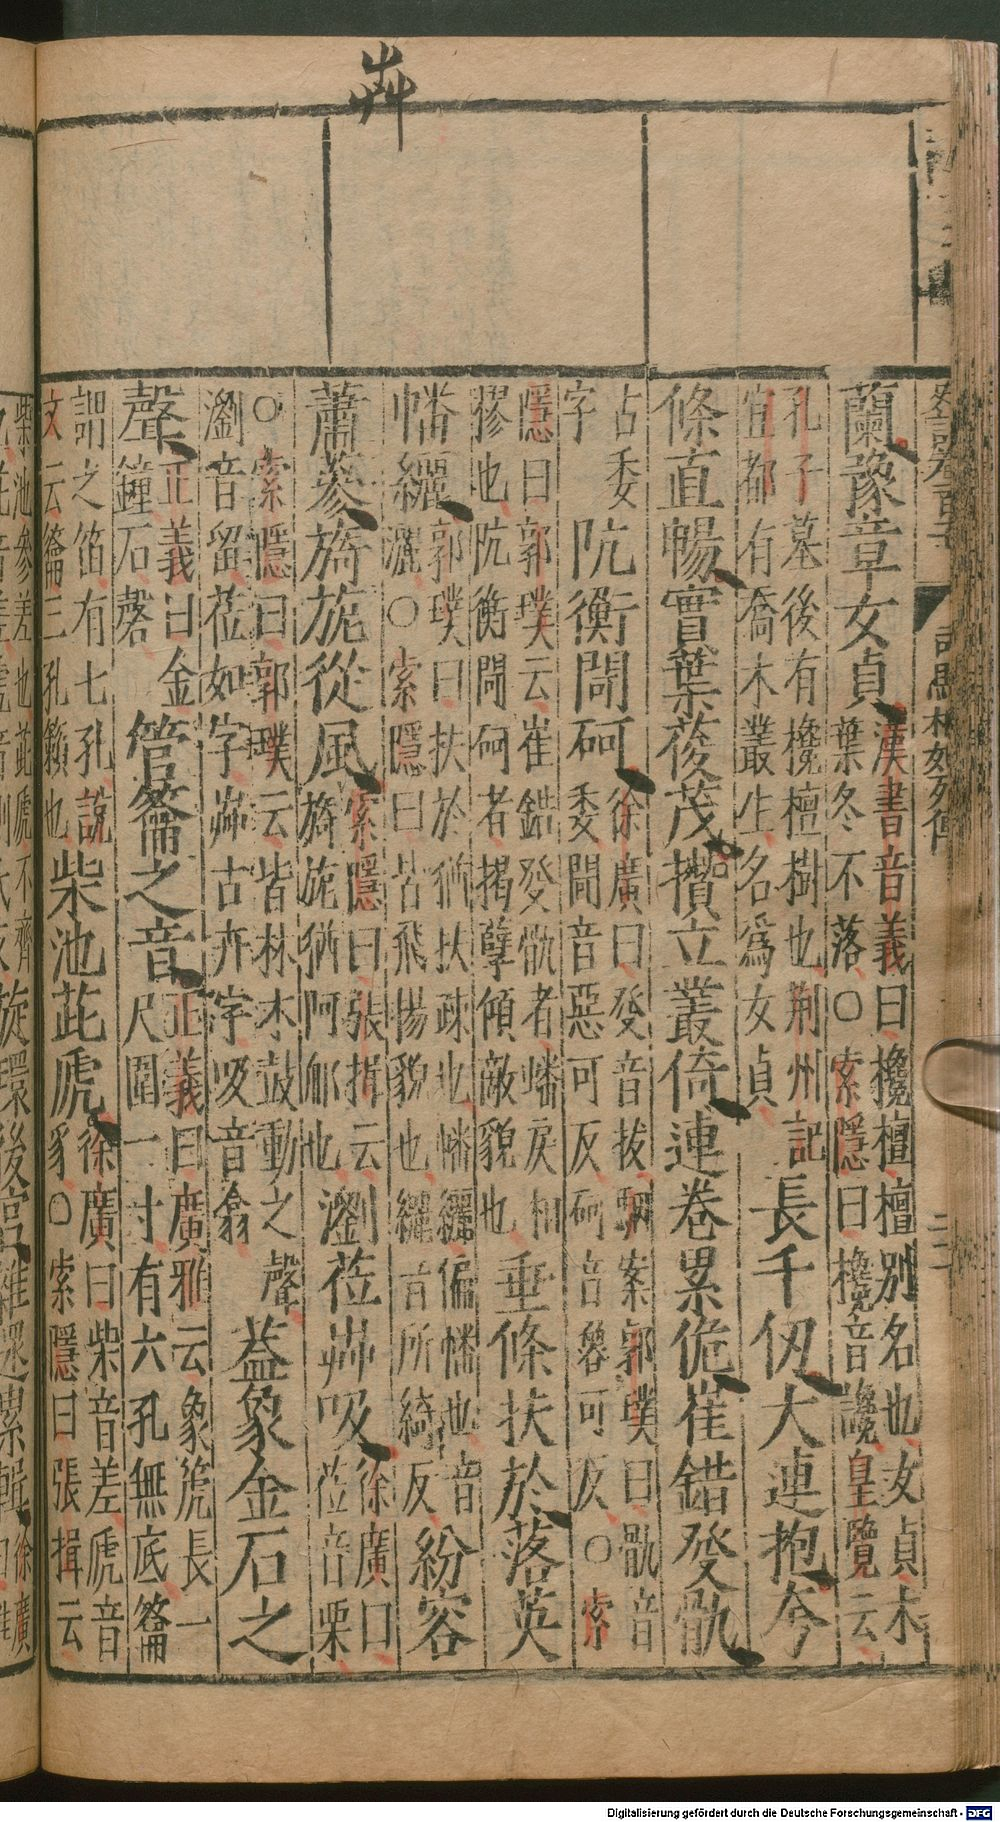 茻
蘭豫章女貞漢書音義曰欃檀檀別名也女貞木
葉冬不落○索隱曰欃音讒皇覽云
孔子墓後有欃檀樹也荆州記
宜都有喬木叢生名爲女貞長千仭大連抱夸
條直暢實葉葰茂攢立叢倚連卷累佹崔錯癹骩
阬衡閜砢徐廣曰癹音拔駰案郭璞曰骩音
古委
字委閜音惡可反砢音魯可反○索
隱曰郭璞云崔錯癹骩者蟠戾相
摎也阬衡閜砢者揭孽傾敵貌也垂條扶於落英
幡纚郭璞曰扶於猶扶疎也幡纚偏幡也音
灑○索隱曰皆飛揚貌也纚音所綺反紛容
蕭蔘旖旎從風索隱曰張揖云
旖旎猶阿郍也瀏莅茻吸徐廣曰
莅音栗
○索隱曰郭璞云皆林木鼓動之聲
瀏音留莅如字茻古卉字吸音翕蓋象金石之
聲正義曰金
鐘石磬管籥之音正義曰廣雅云象箎長一
尺圍一寸有六孔無底籥
謂之笛有七孔說
文云籥三孔籟也柴池茈虒徐廣曰柴音差虒音
豸○索隱曰張揖云
柴池參差也茈虒不齊
旋環後宮雜遝累輯徐廣
Digitalisierung gefördert durch die Deutsche Forschungsgemeinschaft - DFG